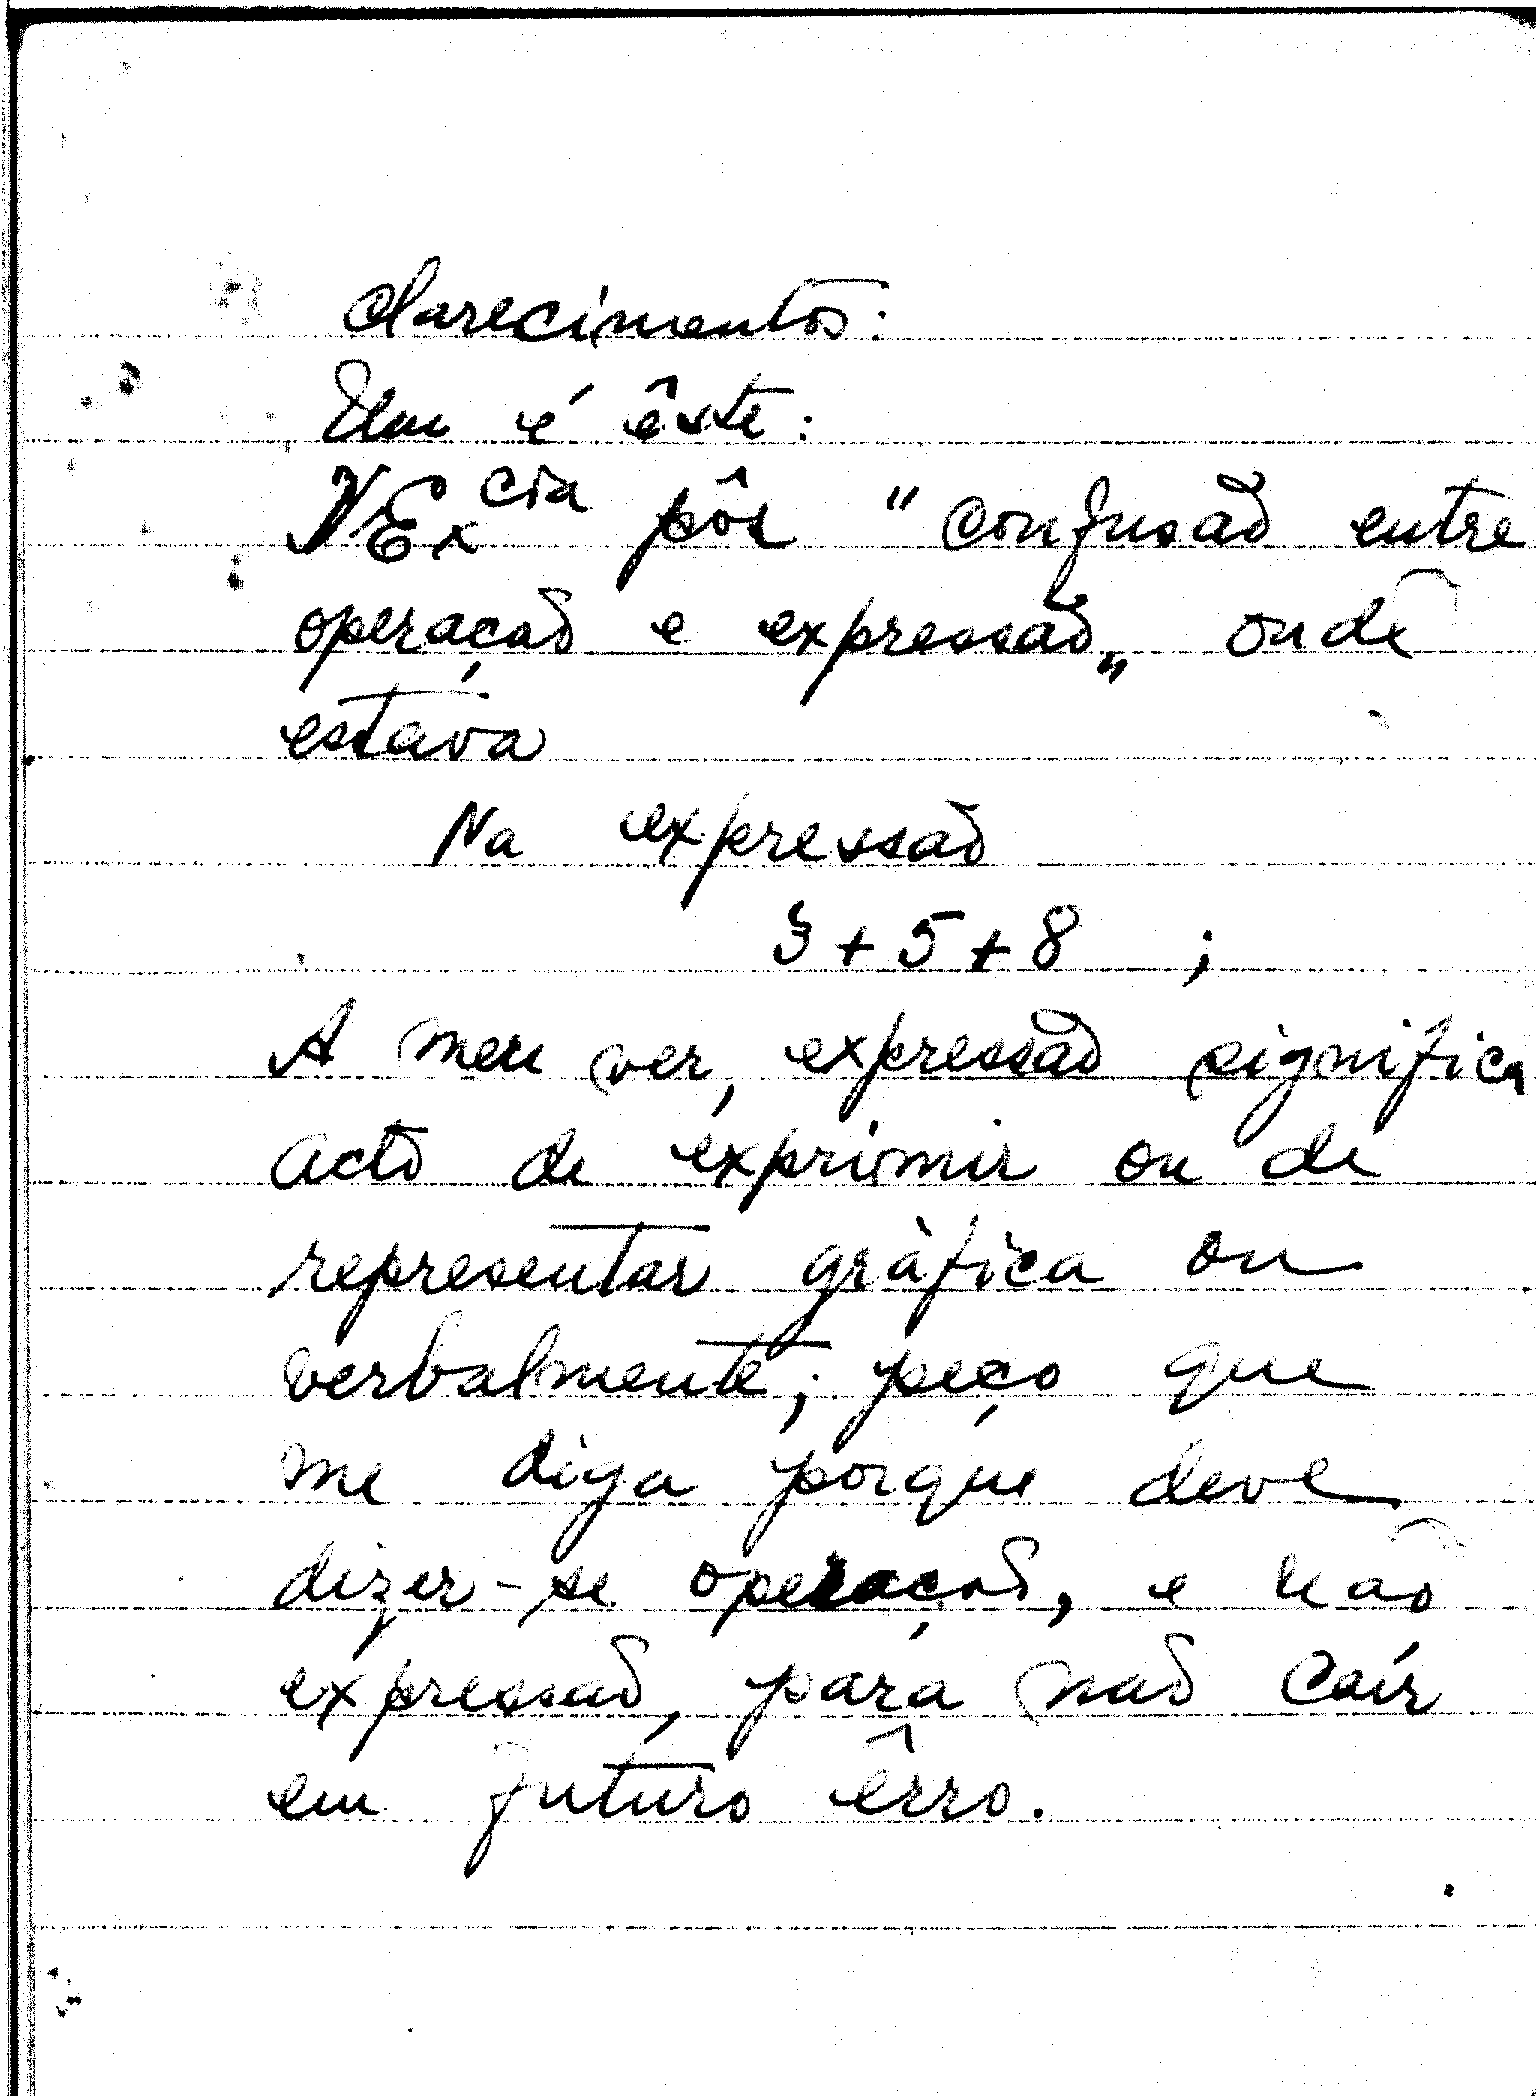 clarecimentos:
Um é êste:
VEx cia pôs "confusão entre
operação e expressão„ onde
estava
Na expressão
3 + 5 + 8 ;
A meu ver, expressão significa
acto de exprimir ou de
representar gràfica ou
verbalmente; peço que
me diga porque deve
dizer-se operação, e não
expressão, para não caír
em futuro êrro.